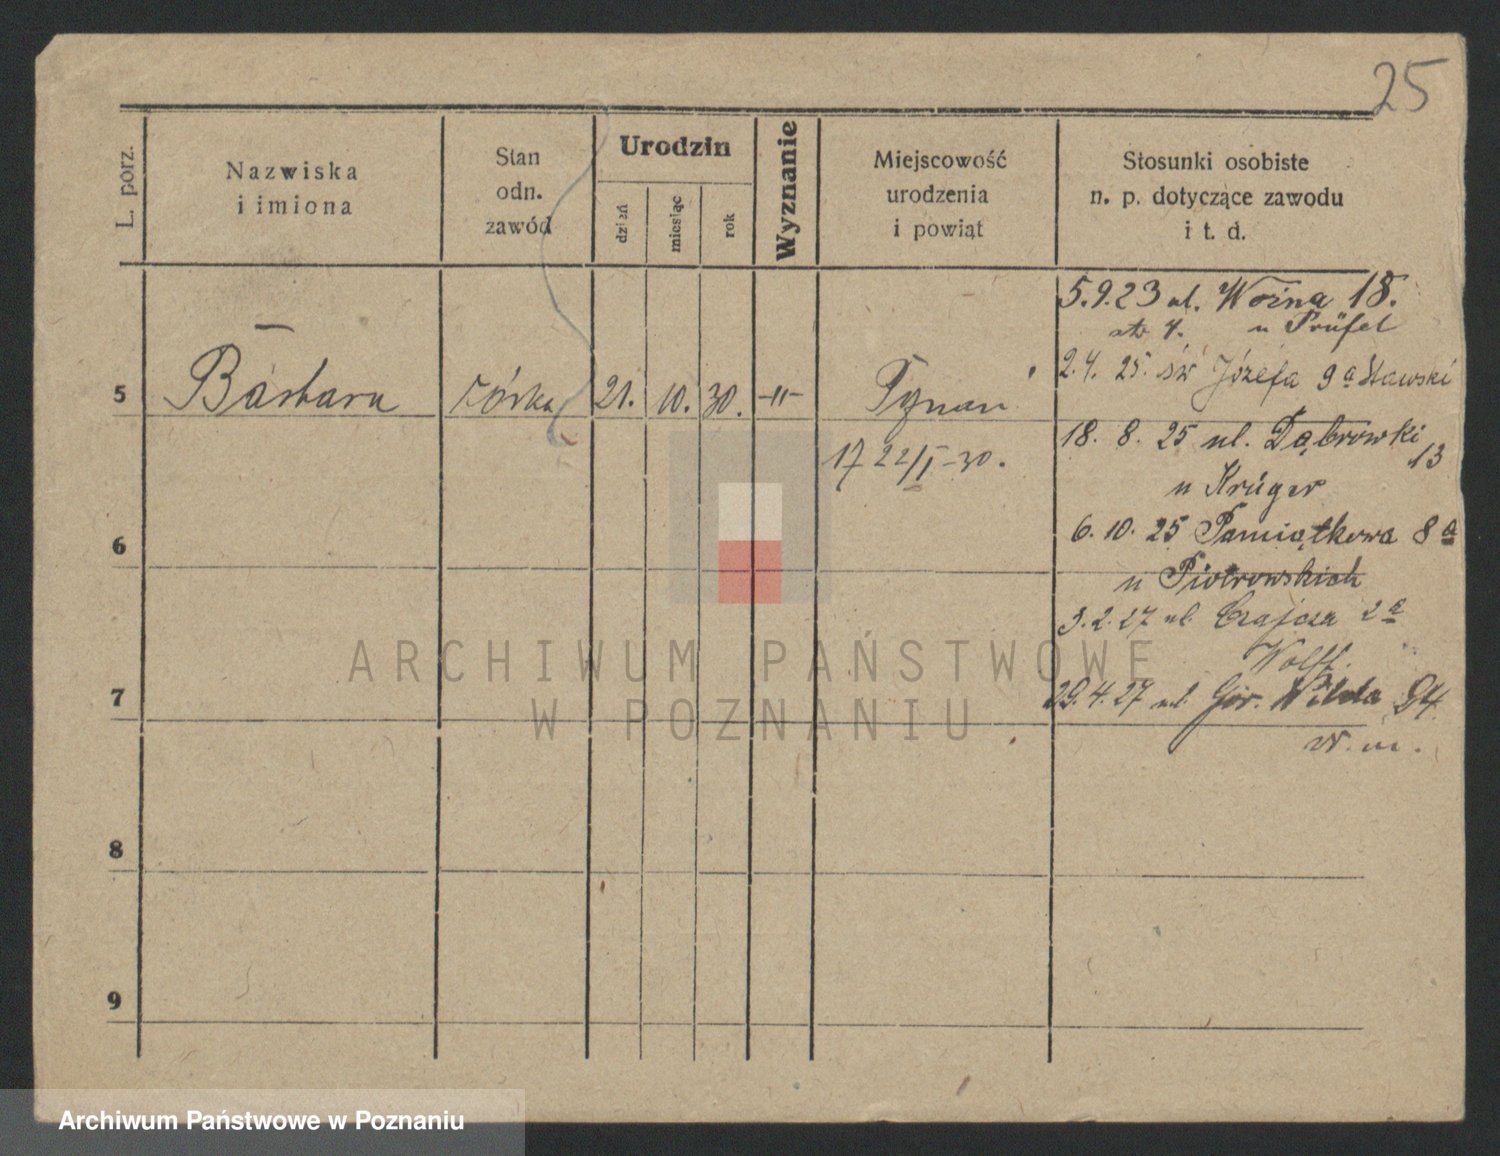 25
L. porz.
Nazwiska
i imiona
Stan
odn.
zawód
Urodzin
dzień
miesiąc
rok
Wyznanie
Miejscowość
urodzenia
i powiąt
Stosunki osobiste
n. p. dotyczące zawodu
i t. d.
5.9.23 ul. Woźna 18.
u Prüfel
2.4. 25. św Józefa 9a Stawski
5 Barbara córka 21. 10. 30. -"- Poznań
18. 8. 25 ul. Dąbrowki
13
17 22/I-30.
u Krüger
6. 10. 25 Pamiątkowa 8a
6
u Piotrowskich
3.2.27 ul. Czajcza 2a
Wolff.
7
29.4.27 ul. Gór. Wilda 94.
w. m.
8
9
ARCHIWUM PAŃSTWOWE
W POZNANIU
Archiwum Państwowe w Poznaniu